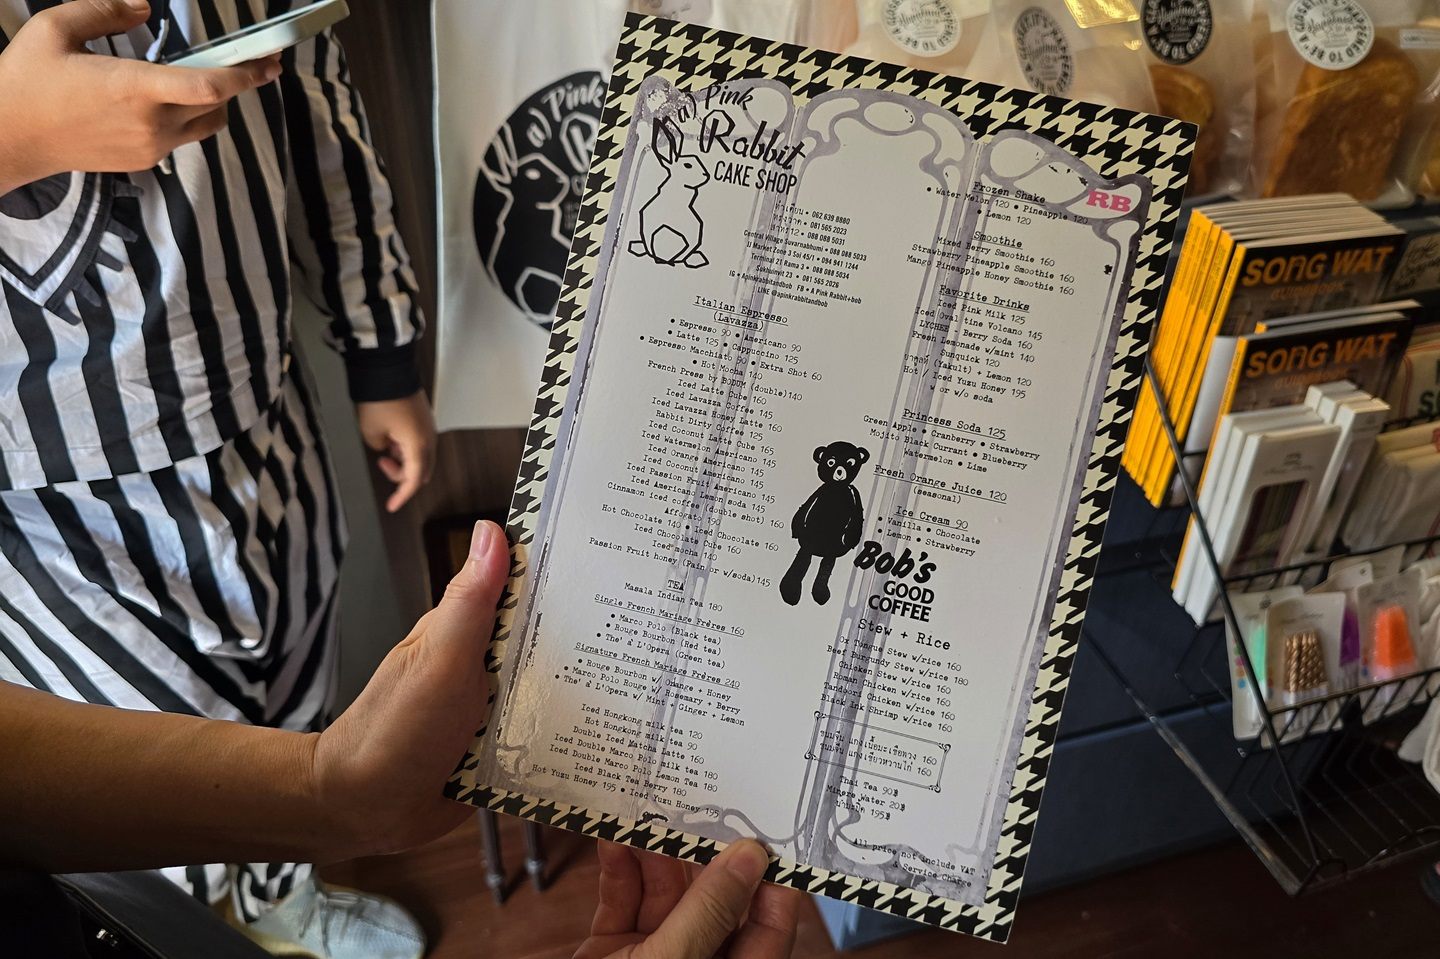 (a) Pink
Rabbit
CAKE SHOP
ท่าเตียน • 062 639 8880
ทรงวาด • 081 565 2023
088 088 5031
Central Village Suvarnabhumi • 088 088 5033
JJ Market Zone 3 Soi 45/1 • 094 941 1244
Terminal 21 Rama 3 • 088 088 5034
Sukhumvit 23 • 081 565 2026
IG • Apinkrabbitandbob FB • A Pink Rabbit+bob
LINE @apinkrabbitandbob
Italian Espresso
(Lavazza)
• Espresso 90 • Americano 90
• Latte 125 • Cappuccino 125
• Espresso Macchiato 90 • Extra Shot 60
• Hot Mocha 140
French Press by BODUM (double)140
Iced Latte Cube 160
Iced Lavazza Coffee 145
Iced Lavazza Honey Latte 160
Rabbit Dirty Coffee 125
Iced Coconut Latte Cube 165
Iced Watermelon Americano 145
Iced Orange Americano 145
Iced Coconut Americano 145
Iced Passion Fruit Americano 145
Iced Americano Lemon soda 145
Cinnamon iced coffee (double shot) 160
Afforato 190
Hot Chocolate 140 • Iced Chocolate 160
Iced Chocolate Cube 160
Iced mocha 140
Passion Fruit honey (Pain or w/soda)145
TEA
Masala Indian Tea 180
Single French Mariage Frères 160
• Marco Polo (Black tea)
• Rouge Bourbon (Red tea)
• The' à L'Opera (Green tea)
Signature French Mariage Frères 240
• Rouge Bourbon w/ Orange + Honey
• Marco Polo Rouge w/ Rosemary + Berry
• The' à L'Opera w/ Mint + Ginger + Lemon
Iced Hongkong milk tea 120
Hot Hongkong milk tea 90
Double Iced Matcha Latte 160
Iced Double Marco Polo milk tea 180
Iced Double Marco Polo Lemon Tea 180
Iced Black Tea Berry 180
Hot Yuzu Honey 195 • Iced Yuzu Honey 195
RB
Frozen Shake
• Water Melon 120 • Pineapple 120
• Lemon 120
Smoothie
Mixed Berry Smoothie 160
Strawberry Pineapple Smoothie 160
Mango Pineapple Honey Smoothie 160
Favorite Drinks
Iced Pink Milk 125
Iced Ovaltine Volcano 145
LYCHEE - Berry Soda 160
Fresh Lemonade w/mint 140
Sunquick 120
ยาคูลท์ (Yakult) + Lemon 120
Hot / Iced Yuzu Honey 195
w or w/o soda
Princess Soda 125
Green Apple • Cranberry • Strawberry
Mojito Black Currant • Blueberry
Watermelon • Lime
Fresh Orange Juice 120
(seasonal)
Ice Cream 90
• Vanilla • Chocolate
• Lemon • Strawberry
Bob's
GOOD
COFFEE
Stew + Rice
Ox Tongue Stew w/rice 160
Beef Burgundy Stew w/rice 180
Chicken Stew w/rice 160
Roman Chicken w/rice 160
Tandoori Chicken w/rice 160
Black Ink Shrimp w/rice 160
ขนมจีน แกงเนื้อมะเขือพวง 160
ขนมจีน แกงเขียวหวานไก่ 160
Thai Tea 90฿
Minere Water 20฿
195฿
All price not include VAT
& Service Charge
(a) Pink
R
SONG WAT
GUIDEBOOK
SONG WAT
GUIDEBOOK